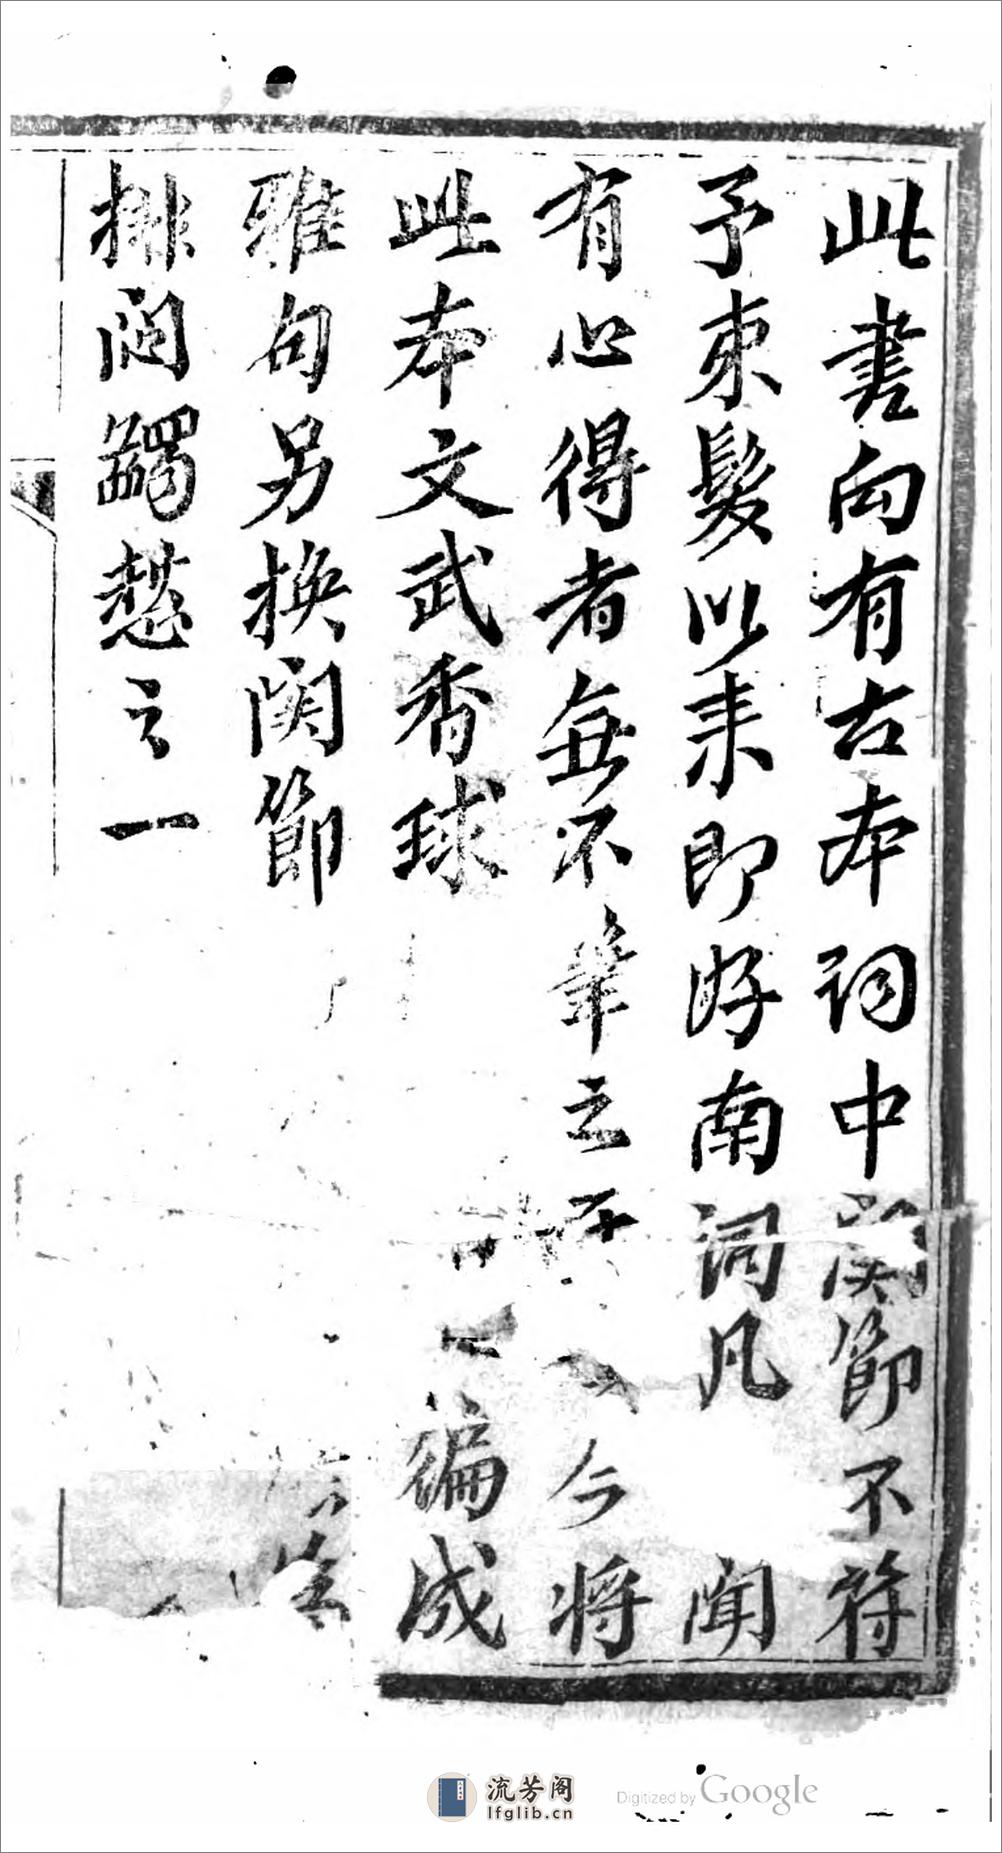 此書向有古本詞中關節不符
予束髮以来即好南詞凡聞
有心得者無不筆之于今將
此本文武香球一編成
雅句另換関節
排悶蠲愁之一
流芳阁
lfglib.cn
Digitized by Google